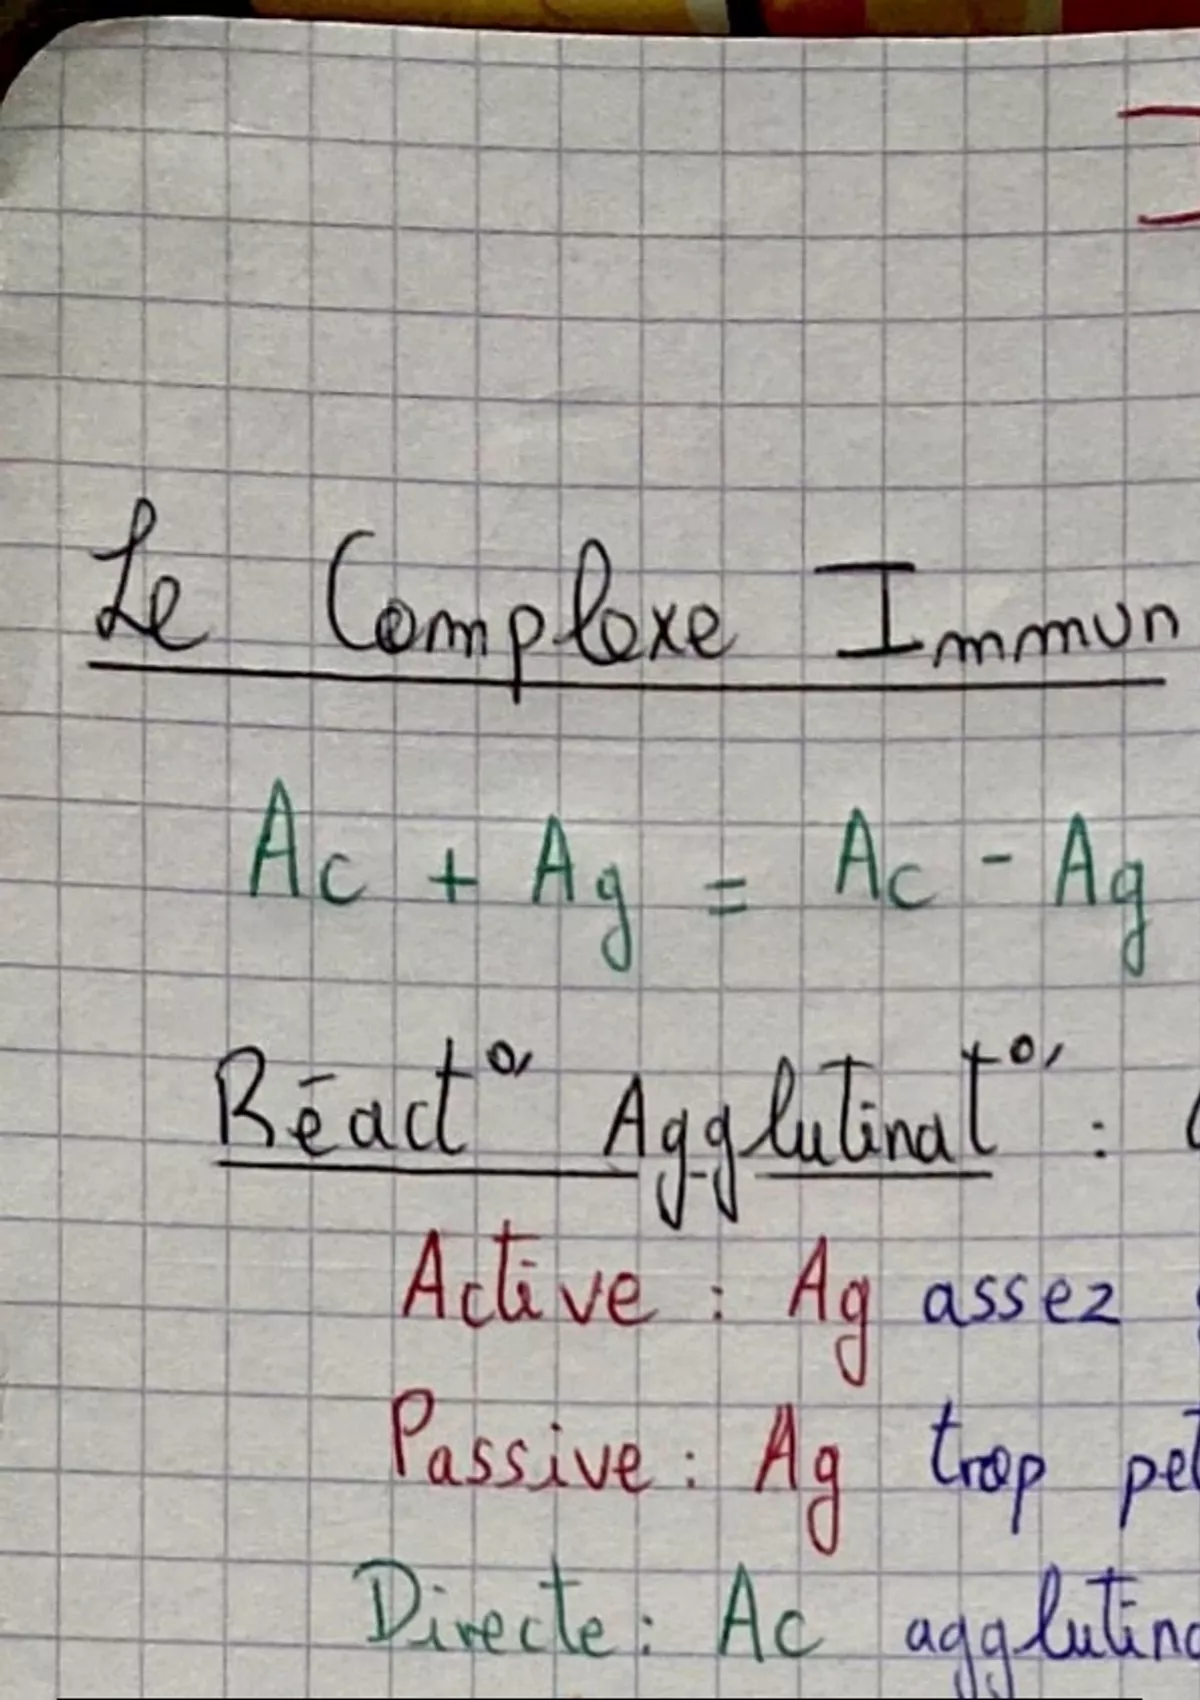 Le Complexe Immun
Ac + Ag = Ac - Ag
Réact° Agglutinat° :
Active : Ag assez
Passive : Ag trop
Directe : Ac